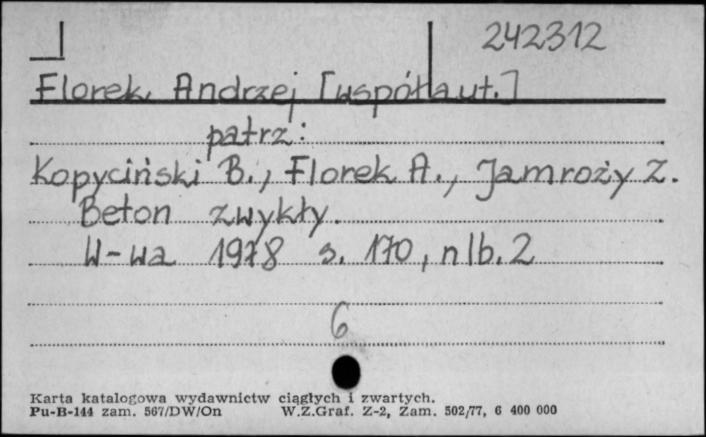 242312
Florek Andrzej [współaut.]
patrz:
Kopyciński B., Florek A., Jamroży Z.
Beton zwykły.
W-wa 1978 s. 170, nlb. 2
6
Karta katalogowa wydawnictw ciągłych i zwartych.
Pu-B-144 zam. 567/DW/On W.Z.Graf. Z-2, Zam. 502/77, 6 400 000